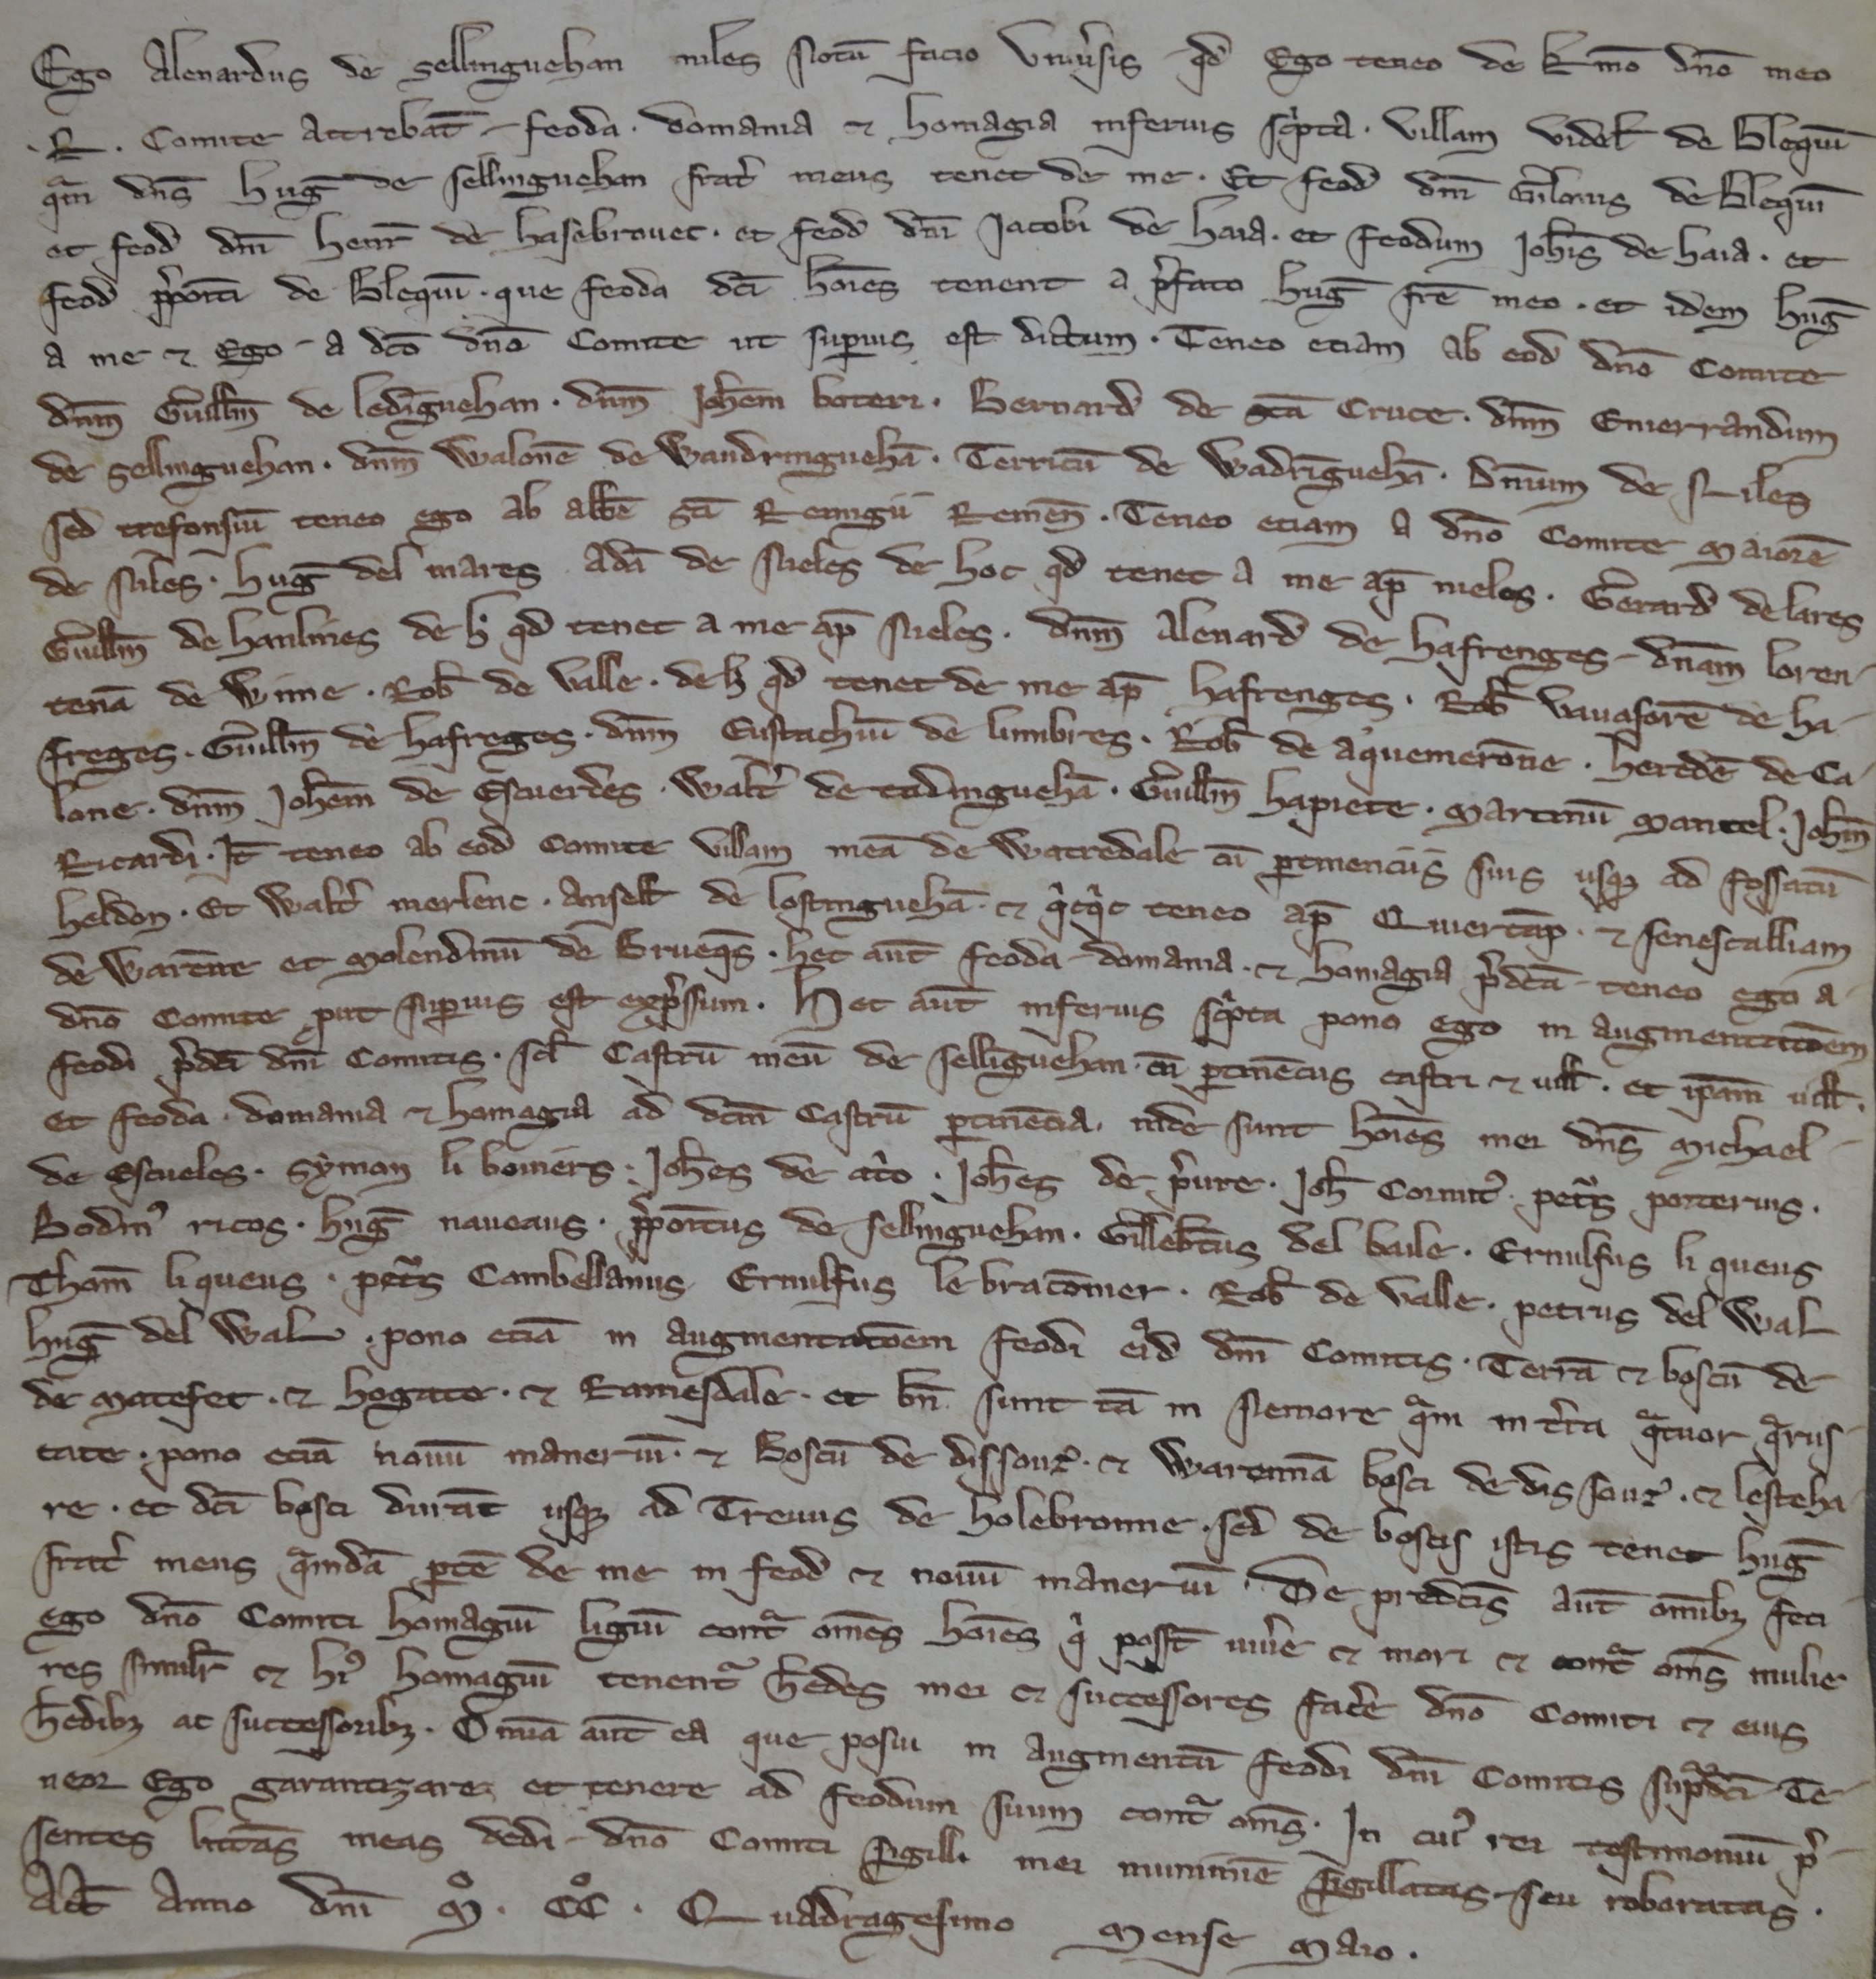 Ego Alenardus de sellinguehan miles Notū facio Vniuͥsis qd Ego teneo de Kmō dnō meo
.R. Comite Attrebat̄ feoda. domania ⁊ homagia inferius scͥpta. villam videlꝫ de Blequī
qᵃm dn̄s huḡ de sellinguehan frat̾ meus tenet de me. Et feod̄ dn̄i Gͥlonis de Blequī
et feod̄ dn̄i henr̄ de hasebrouec. et feod̄ dn̄i Jacobi de haia. et feodum Joh̄is de haia. et
feod̄ p̾poīti de Blequī. que feoda dc̄i hoīes tenent a p̾fato huḡ fr̄e meo. et idem huḡ
a me ⁊ Ego a dc̄o dn̄o Comite ut superius est dictum. Teneo etiam ab eod̄ dn̄o Comite
dn̄m Guill̄m de ledīguehan. dn̄m Joh̄em boteri. Bernard̄ de sc̄a Cruce. dn̄m Enierrandum
de sellinguehan. dn̄m Walonē de Wandringuehā. Terricū de Wadrīguehā. Dn̄ium de Niles
sed trefonsiū teneo ego ab abb̄e sc̄i Remigii Remen̄. Teneo etiam a dn̄o Comite Maiorē
de Niles. huḡ del mares Adā de Nieles de hoc qd̄ tenet a me ap̄ nieles. Gerard̄ de lares
Guill̄m de haulines de h̄ qd̄ tenet a me ap̄ Nieles. dn̄m Alenard̄ de hafrenges dn̄am loren-
tenā de Wime. Rob̄ de valle. de h̄ qd̄ tenet de me ap̄ hafrenges. Rob̄ vauasorē de ha-
freges. Guill̄m de hafreges. dn̄m Eustachiū de lumbres. Rob̄ de a'quemerōne. heredē de Ca-
lone. dn̄m Joh̄em de Escuerdes. Walt̾ de tadinguehā. Guill̄m hapiete. Martinū Mantel. Joh̄m
Ricardi. It̄ teneo ab eod̄ Comite villam meā de Watredale cū ꝑtinenciis suis usqꝫ ad fossatū
heldon. Et Walt̾ merlenc. Ansell̄ de lostinguehā. ⁊ qͥcqͥd teneo ap̄ Quiertāp. ⁊ senescalliam
de Warēne et Molendinū de Brueqs̄. hec aut̄ feoda domania. ⁊ homagia p̾dc̄a teneo ego a
dn̄o Comite ꝓut superius est exp̾ssum. Hec aut̄ inferius scͥpta pono ego in augmentatōem
feodi p̾dc̄i dn̄i Comitis. scꝉ Castrū meū de sellīguehan. cū ꝑtinēciis castri ⁊ uill̄. et ip̄am uill̄.
et feoda domania ⁊ homagia ad dc̄m Castrū ꝑtinēcia. inde sunt hoīes mei dn̄s Michael
de Escueles. Symon li boiners. Joh̄es de at̾o. Joh̄es de p̾ure. Joh̄ Cornut̾. Petᵃs porterius.
Bodinꝰ ricos. huḡ naueaus. p̾poītus de sellinguehan. Gillebt̄us del baile. Ernulfus li queus
Thom̄ li queus. petᵃs Cambellanus Ernulfus le bracōnier. Rob̄ de valle. petrus del Wal
huḡ del Wal. pono etiā in augmentatōem feodi eiꝰd̄ dn̄i Comitis. Terrā ⁊ boscū de
de Matefet. ⁊ hogate. ⁊ Ramesdale. et bn̄ sunt tā in Nemore qᵃm in t̾ra qᵃtuor qᵃrus-
cate. pono etiā nouū maneriū. ⁊ Boscū de dissour̾. ⁊ Warennā bosci de dissour̾. ⁊ lesteha-
re. et dc̄i bosci durāt usqꝫ ad Treuus de holebronne. sed de boscis istis tenet huḡ
frat̾ meus qᵃmdā ꝑtē de me in feod̄ ⁊ nouū maneriū. De predc̄is aut̄ omībꝫ feci
ego dn̄o Comiti homagiū ligiū contᵃ om̄es hoīes qͥ poss̄t uiue̾ ⁊ mori ⁊ contᵃ om̄s mulie-
res simil̄r ⁊ hꝰ homagiū tenentᵃ h̄edes mei ⁊ successores face̾ dn̄o Comiti ⁊ eius
h̄edibꝫ ac successoribꝫ. Omīa aut̄ ea que posui in augmentū feodi dn̄i Comitis supᵃdc̄i Te-
neor Ego garantizare et tenere ad feodum suum contᵃ om̄s. In cuiꝰ rei testimoniū p̾-
sentes litt̄as meas dedi dn̄o Comiti sigilli mei munimīe sigillatas seu roboratas.
Act̄ Anno dn̄i Mº. CCº. Quadragesimo Mense Maio.